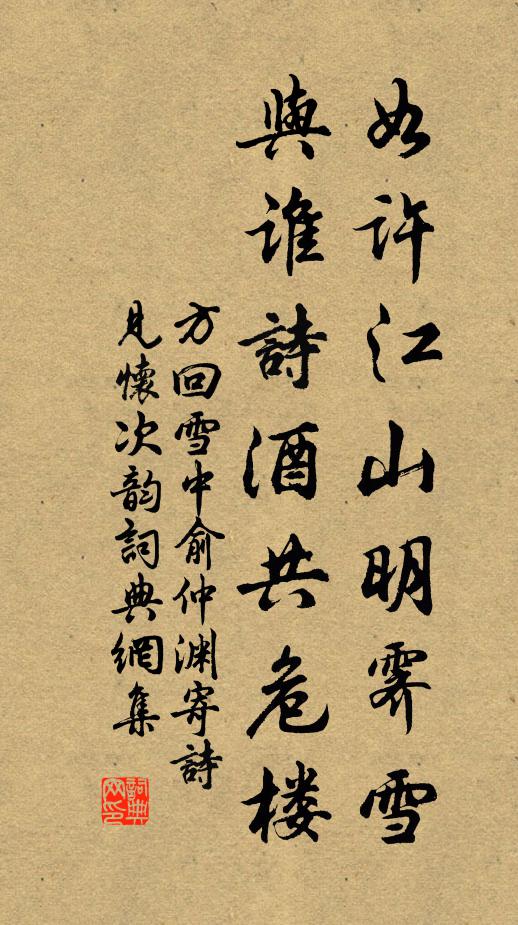 如许江山明霽雪
與誰詩酒共危楼
方回雪中俞仲渊寄詩
見懷次韵詞典網集
詞典网印